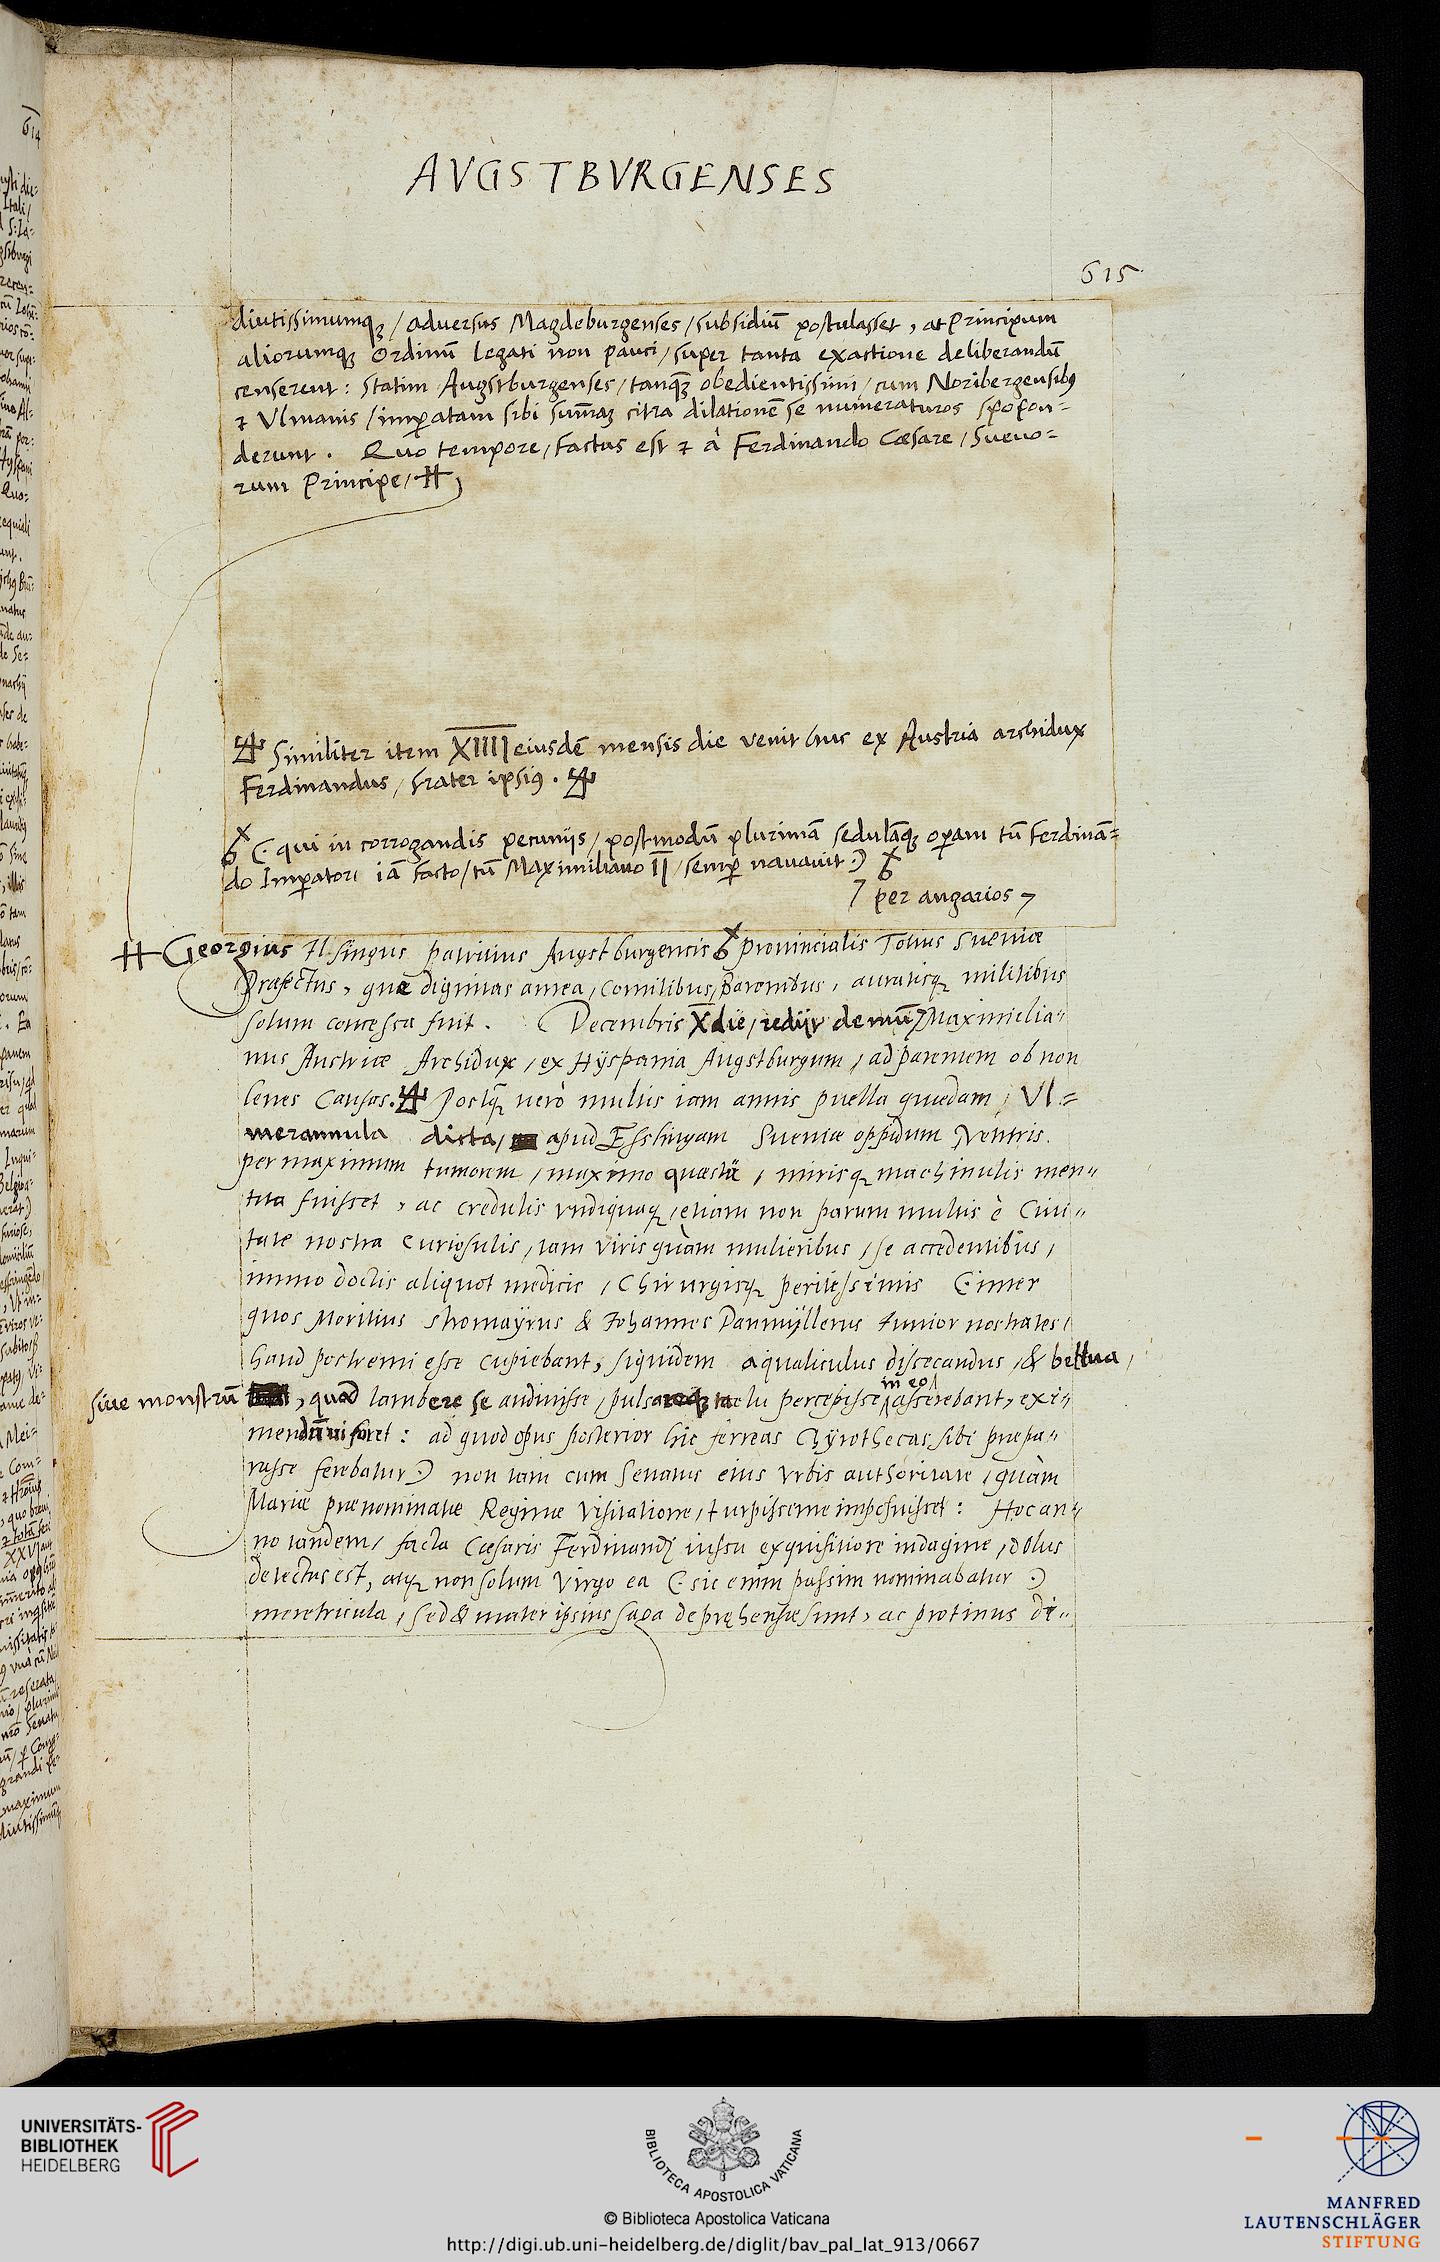 AVGSTBVRGENSES
615
diutissimumq₃ / adversus Magdeburgenses / subsidiū postulasset, at Principum
aliorumq₃ Ordinū legati non pauci / super tanta exactione deliberandū
censerent: statim Augstburgenses / tanq̄₃ obedientissimi / cum Noribergensibꝰ
⁊ Vlmanis / imperatam sibi sum̄a₃ citra dilationē se numeraturos spopon=
derunt. Quo tempore / factus est ⁊ à Ferdinando Cæsare / Suevo=
rum Principe /
Similiter item XIIII eiusdē mensis die venit huc ex Austria archidux
Ferdinandus / frater ipsiꝰ.
(: qui in corrogandis pecunijs / postmodū plurimā sedulāq₃ operam tū Ferdinā=
do Imperatori iā facto / tū Maximiliano II / semper navavit :)
per angarios
Georgius Ilsingus patritius Augstburgensis Provincialis Totius Sueviæ
Præfectus, quæ dignitas antea / Comitibus / Baronibus / auratisq₃ militibus
solum concessa fuit. Decembris X die / redijt demū Maximilia=
nus Austriæ Archidux / ex Hijspania Augstburgum / ad parentem ob non
leves causas. Postq̄₃ verò multis iam annis puella quædam / Vl=
merannula dicta / apud Esslingam Sueviæ oppidum / ventris
per maximum tumorem / maximo quæstū / mirisq₃ machinulis men=
tita fuisset, ac credulis vndiquaq₃ / etiam non parum multis è Ciui=
tate nostra Curiosulis / tam viris quàm mulieribus / se accedentibus /
immo doctis aliquot medicis / Chirurgisq₃ peritissimis (: inter
quos Moritius Shomaÿrus & Johannes Danmÿllerus Iunior nostrates /
haud postremi esse cupiebant, siquidem aqualiculus dissecandus / & bellua /
siue monstrū, quod lambere se audivisse / pulsareq₃ tactu percepisse in eo asserebant, exi=
mendū ui foret: ad quod opus posterior hic ferreas Chÿrothecas sibi præpa=
rasse ferebatur :) non tam cum Senatus eius vrbis authoritate / quàm
Mariæ prænominatæ Reginæ Visitatione / turpissime imposuisset: Hoc an=
no tandem / facta Cæsaris Ferdinandi iussu exquisitiore indagine / dolus
detectus est, atq₃ non solum Virgo ea (: sic enim passim nominabatur :)
meretricula / sed & mater ipsius saga deprehensæ sunt, ac protinus di=
UNIVERSITÄTS-
BIBLIOTHEK
HEIDELBERG
BIBLIOTECA APOSTOLICA VATICANA
© Biblioteca Apostolica Vaticana
http://digi.ub.uni-heidelberg.de/diglit/bav_pal_lat_913/0667
MANFRED
LAUTENSCHLÄGER
STIFTUNG